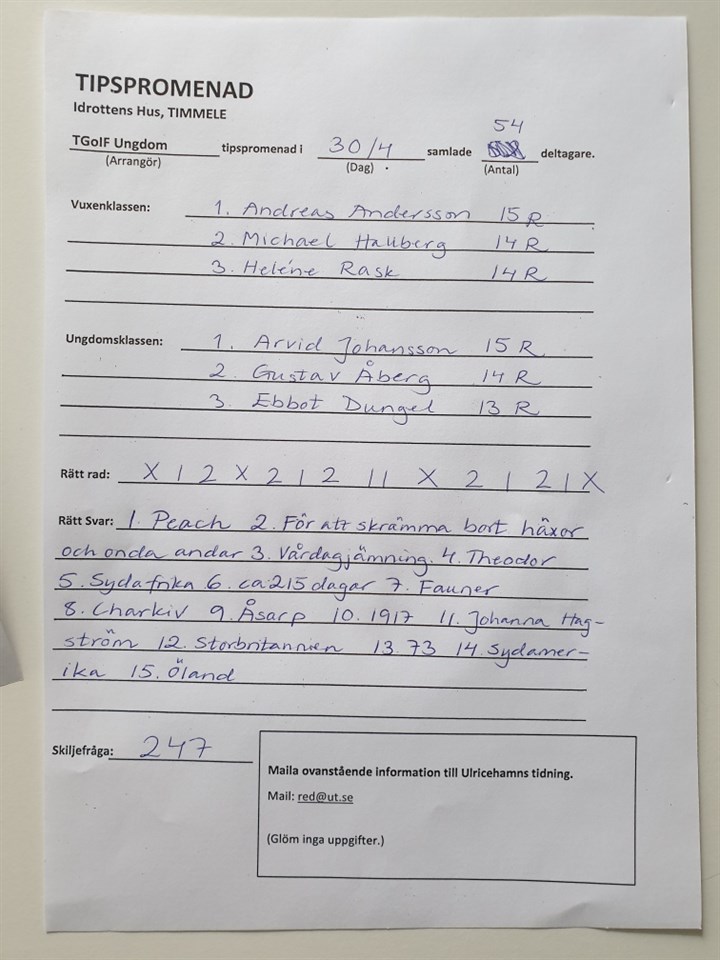 TIPSPROMENAD
Idrottens Hus, TIMMELE
54
TGoIF Ungdom tipspromenad i 30/4 samlade deltagare.
(Arrangör) (Dag) (Antal)
Vuxenklassen: 1. Andreas Andersson 15 R
2. Michael Hallberg 14 R
3. Heléne Rask 14 R
Ungdomsklassen: 1. Arvid Johansson 15 R
2. Gustav Åberg 14 R
3. Ebbot Dungel 13 R
Rätt rad: X 1 2 X 2 1 2 1 1 X 2 1 2 1 X
Rätt Svar: 1. Peach 2. För att skrämma bort häxor
och onda andar 3. Vårdagjämning. 4. Theodor
5. Sydafrika 6. ca:215 dagar 7. Fauner
8. Charkiv 9. Åsarp 10. 1917 11. Johanna Hag-
ström 12. Storbritannien 13. 73 14. Sydamer-
ika 15. Öland
Skiljefråga: 247
Maila ovanstående information till Ulricehamns tidning.
Mail: red@ut.se
(Glöm inga uppgifter.)